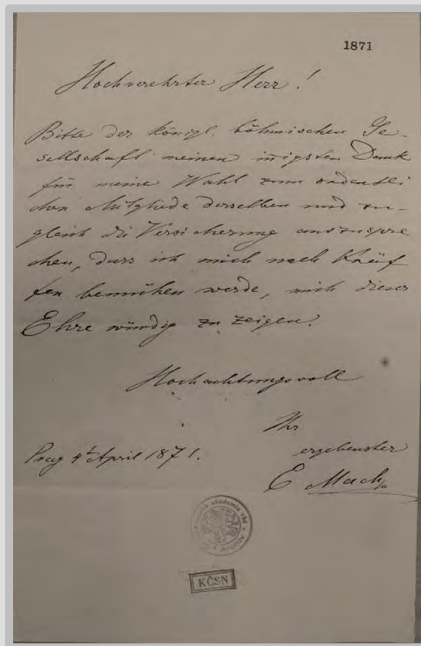 1871
Hochverehrter Herr!
Bitte der königl. böhmischen Ge-
sellschaft meinen innigsten Dank
für meine Wahl zum ordentli
chen Mitgliede derselben und zu-
gleich die Versicherung auszuspre
chen, dass ich mich nach Kräf
ten bemühen werde, mich dieser
Ehre würdig zu zeigen.
Hochachtungsvoll
Ihr
ergebenster
Prag 4t April 1871.
E Mach
KČSN